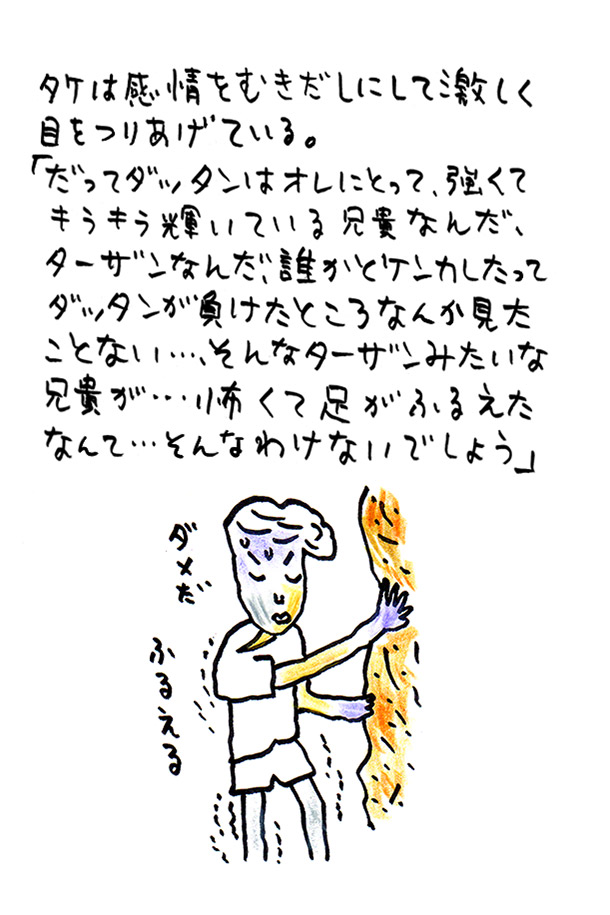 タケは感情をむきだしにして激しく
目をつりあげている。
「だってダッタンはオレにとって、強くて
キラキラ輝いている兄貴なんだ、
ターザンなんだ、誰かとケンカしたって
ダッタンが負けたところなんか見た
ことない…、そんなターザンみたいな
兄貴が…怖くて足がふるえた
なんて…そんなわけないでしょう」
ダメだ
ふるえる